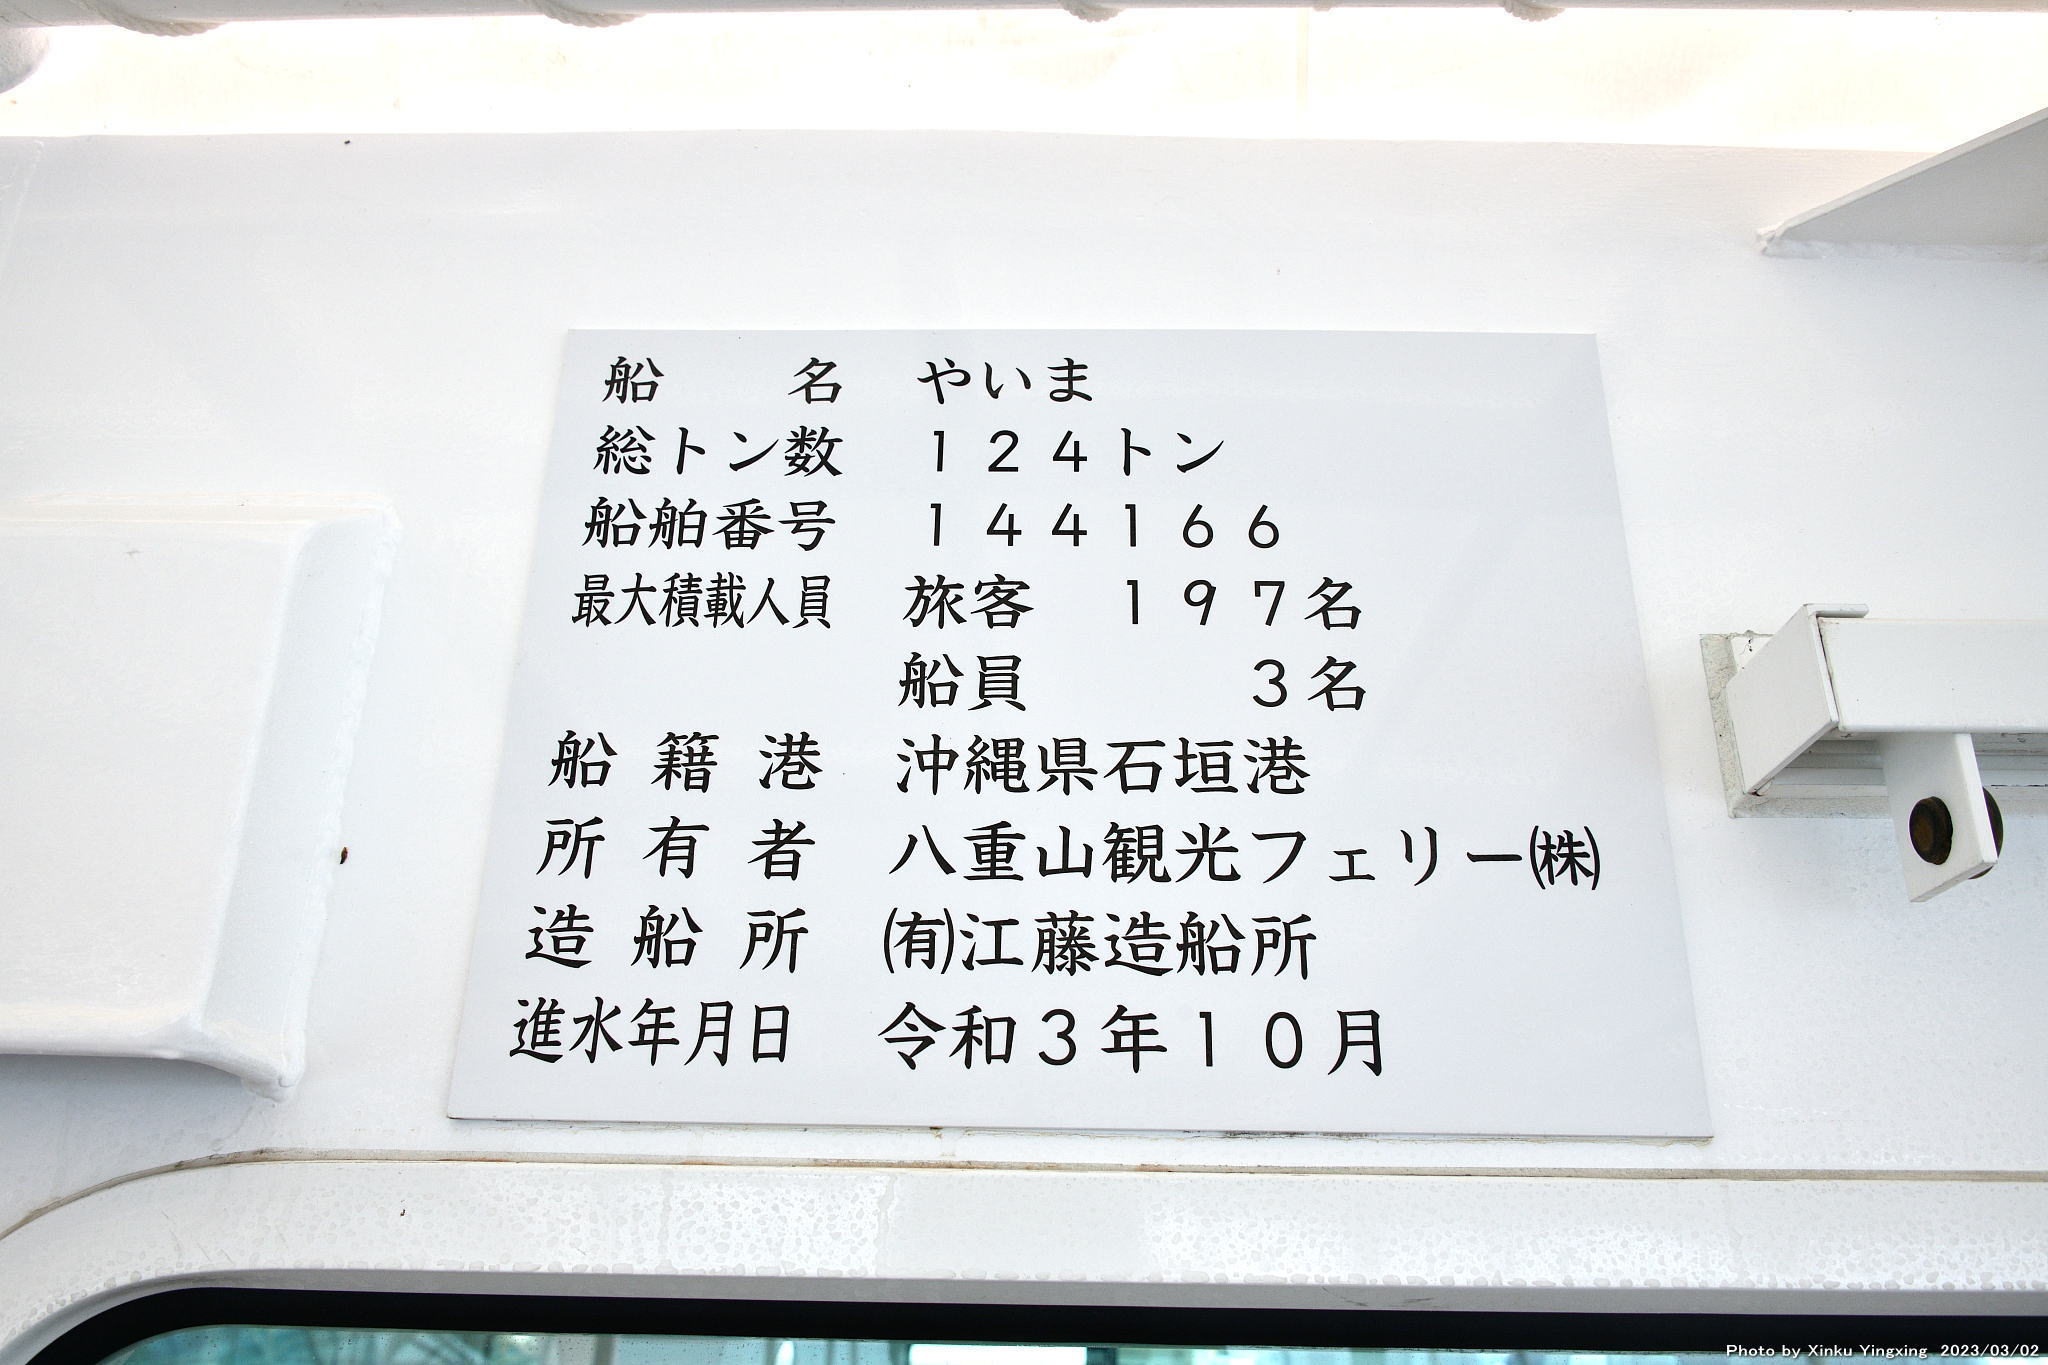 船名 やいま
総トン数 124トン
船舶番号 144166
最大積載人員 旅客 197名
船員 3名
船籍港 沖縄県石垣港
所有者 八重山観光フェリー㈱
造船所 ㈲江藤造船所
進水年月日 令和3年10月
Photo by Xinku Yingxing 2023/03/02